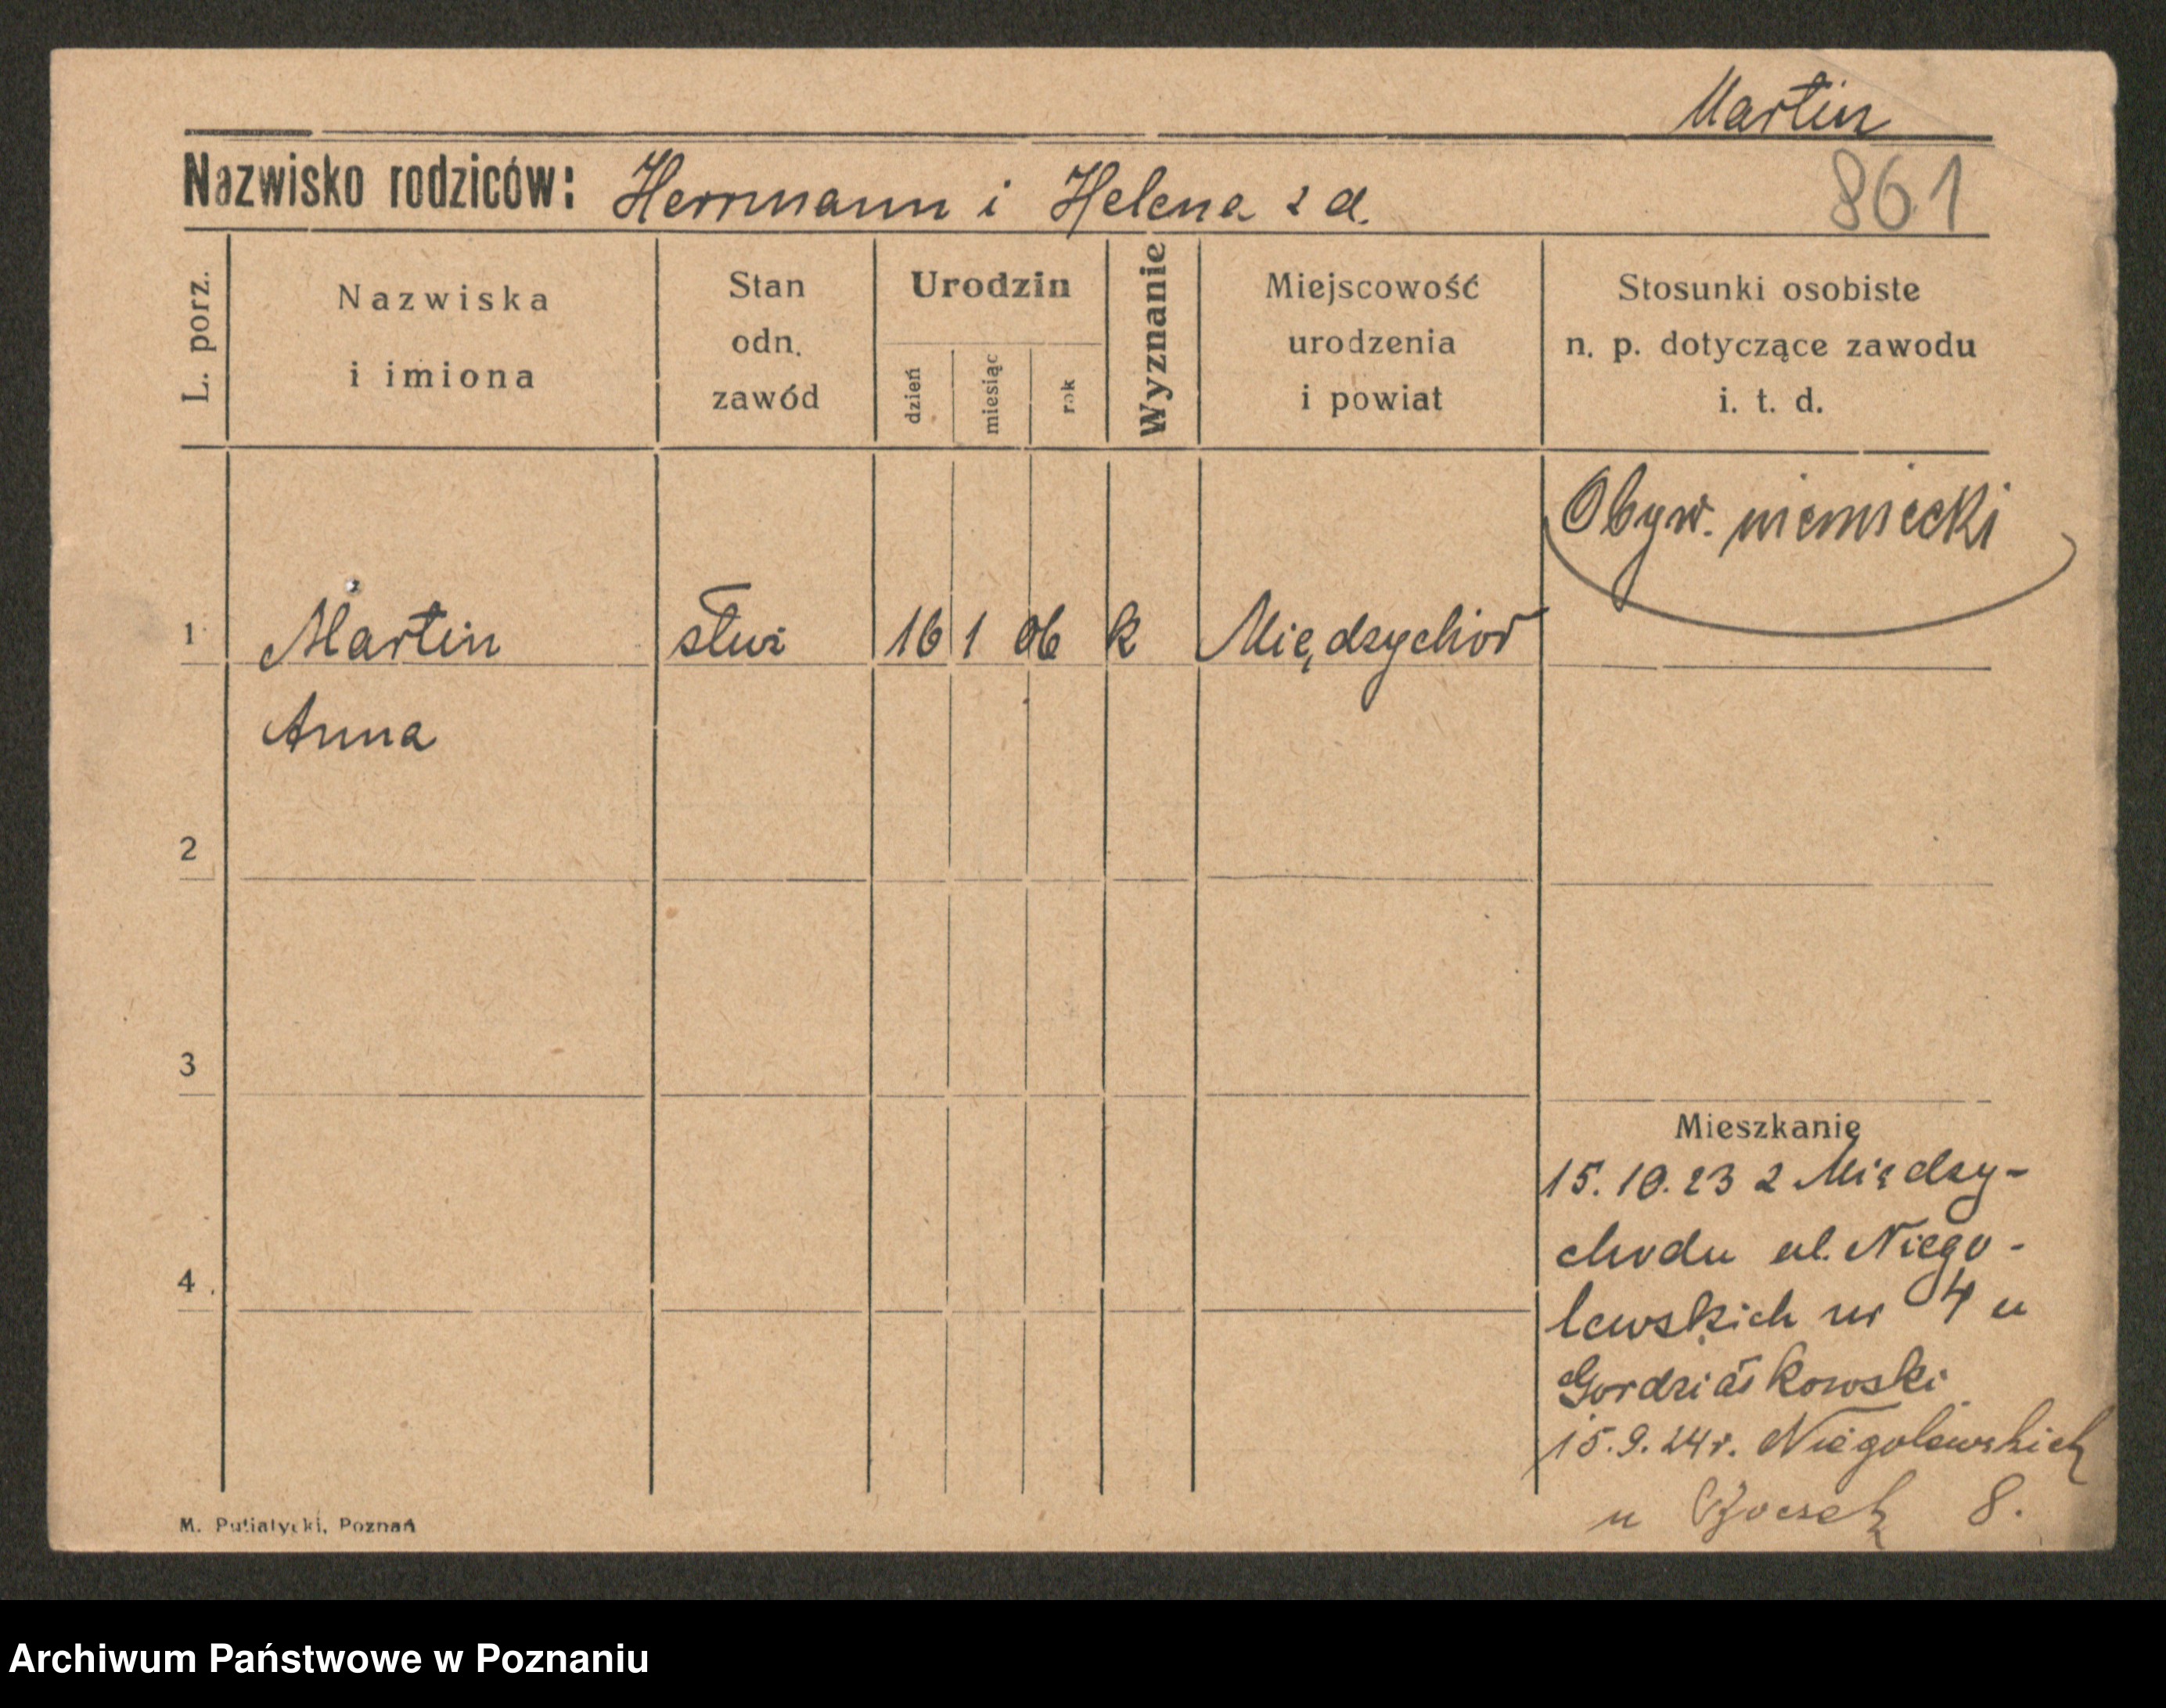 Martin
Nazwisko rodziców: Herrmann i Helena z d.
861
L. porz.
Nazwiska
i imiona
Stan
odn.
zawód
Urodzin
dzień
miesiąc
rok
Wyznanie
Miejscowość
urodzenia
i powiat
Stosunki osobiste
n. p. dotyczące zawodu
i. t. d.
Obyw. niemiecki
1 Martin służ 16 1 06 k Międzychód
Anna
2
3
4
Mieszkanie
15. 10. 23 z Między-
chodu ul. Niego-
lewskich nr 4 u
15. 9. 24 r. Niegolewskich
u 8.
M. Putiatycki, Poznań
Archiwum Państwowe w Poznaniu